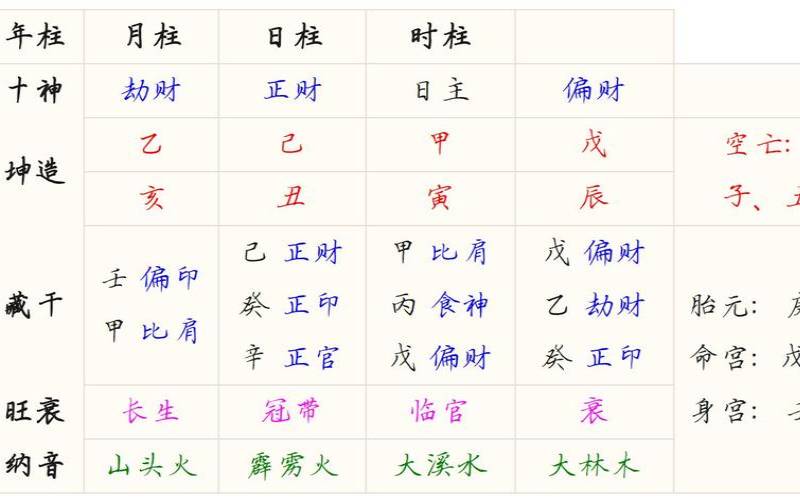 年柱 月柱 日柱 时柱
十神 劫财 正财 日主 偏财
坤造 乙 己 甲 戊 空亡:
亥 丑 寅 辰 子、
藏干 壬 偏印 己 正财 甲 比肩 戊 偏财
甲 比肩 癸 正印 丙 食神 乙 劫财 胎元:
辛 正官 戊 偏财 癸 正印 命宫:
旺衰 长生 冠带 临官 衰 身宫:
纳音 山头火 霹雳火 大溪水 大林木